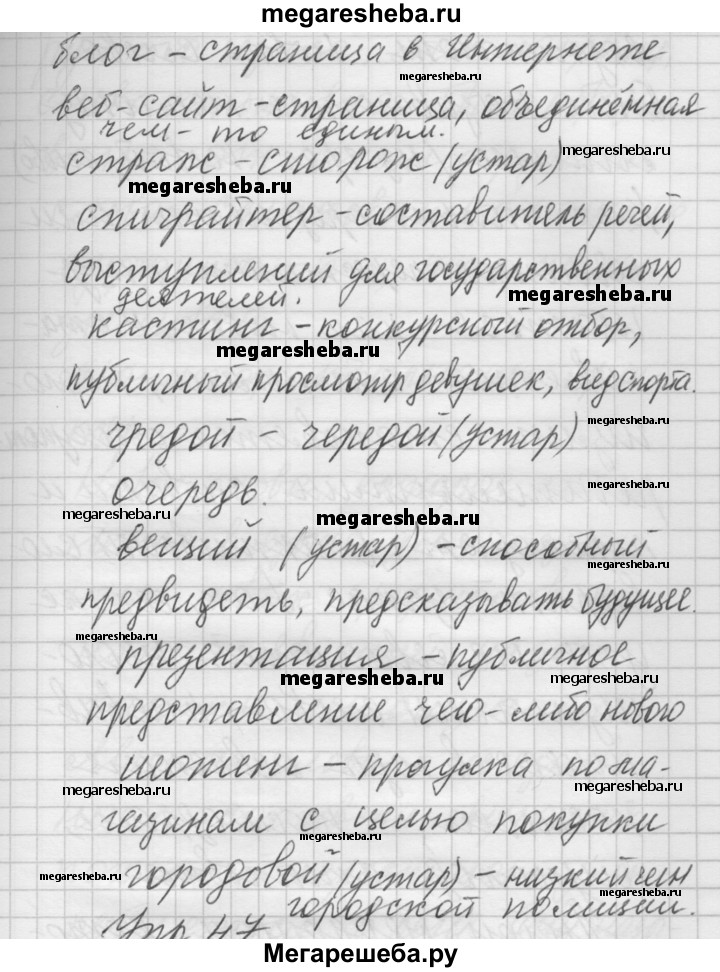 megaresheba.ru
блог – страница в Интернете
megaresheba.ru
веб-сайт – страница, объединённая
чем-то единым.
megaresheba.ru
страж – сторож (устар)
megaresheba.ru
спичрайтер – составитель речей,
выступлений для государственных
деятелей.
megaresheba.ru
кастинг – конкурсный отбор,
megaresheba.ru
публичный просмотр девушек, вид спорта.
megaresheba.ru
чредой – чередой (устар)
megaresheba.ru
очередь.
megaresheba.ru
megaresheba.ru
вещий (устар) – способный
megaresheba.ru
предвидеть, предсказывать будущее.
megaresheba.ru
презентация – публичное
megaresheba.ru
представление чего-либо нового
шопинг – прогулка по ма-
megaresheba.ru
megaresheba.ru
газинам с целью покупки
megaresheba.ru
городовой (устар) – низкий чин
megaresheba.ru
megaresheba.ru
городской полиции.
Упр 47
Мегарешеба.ру